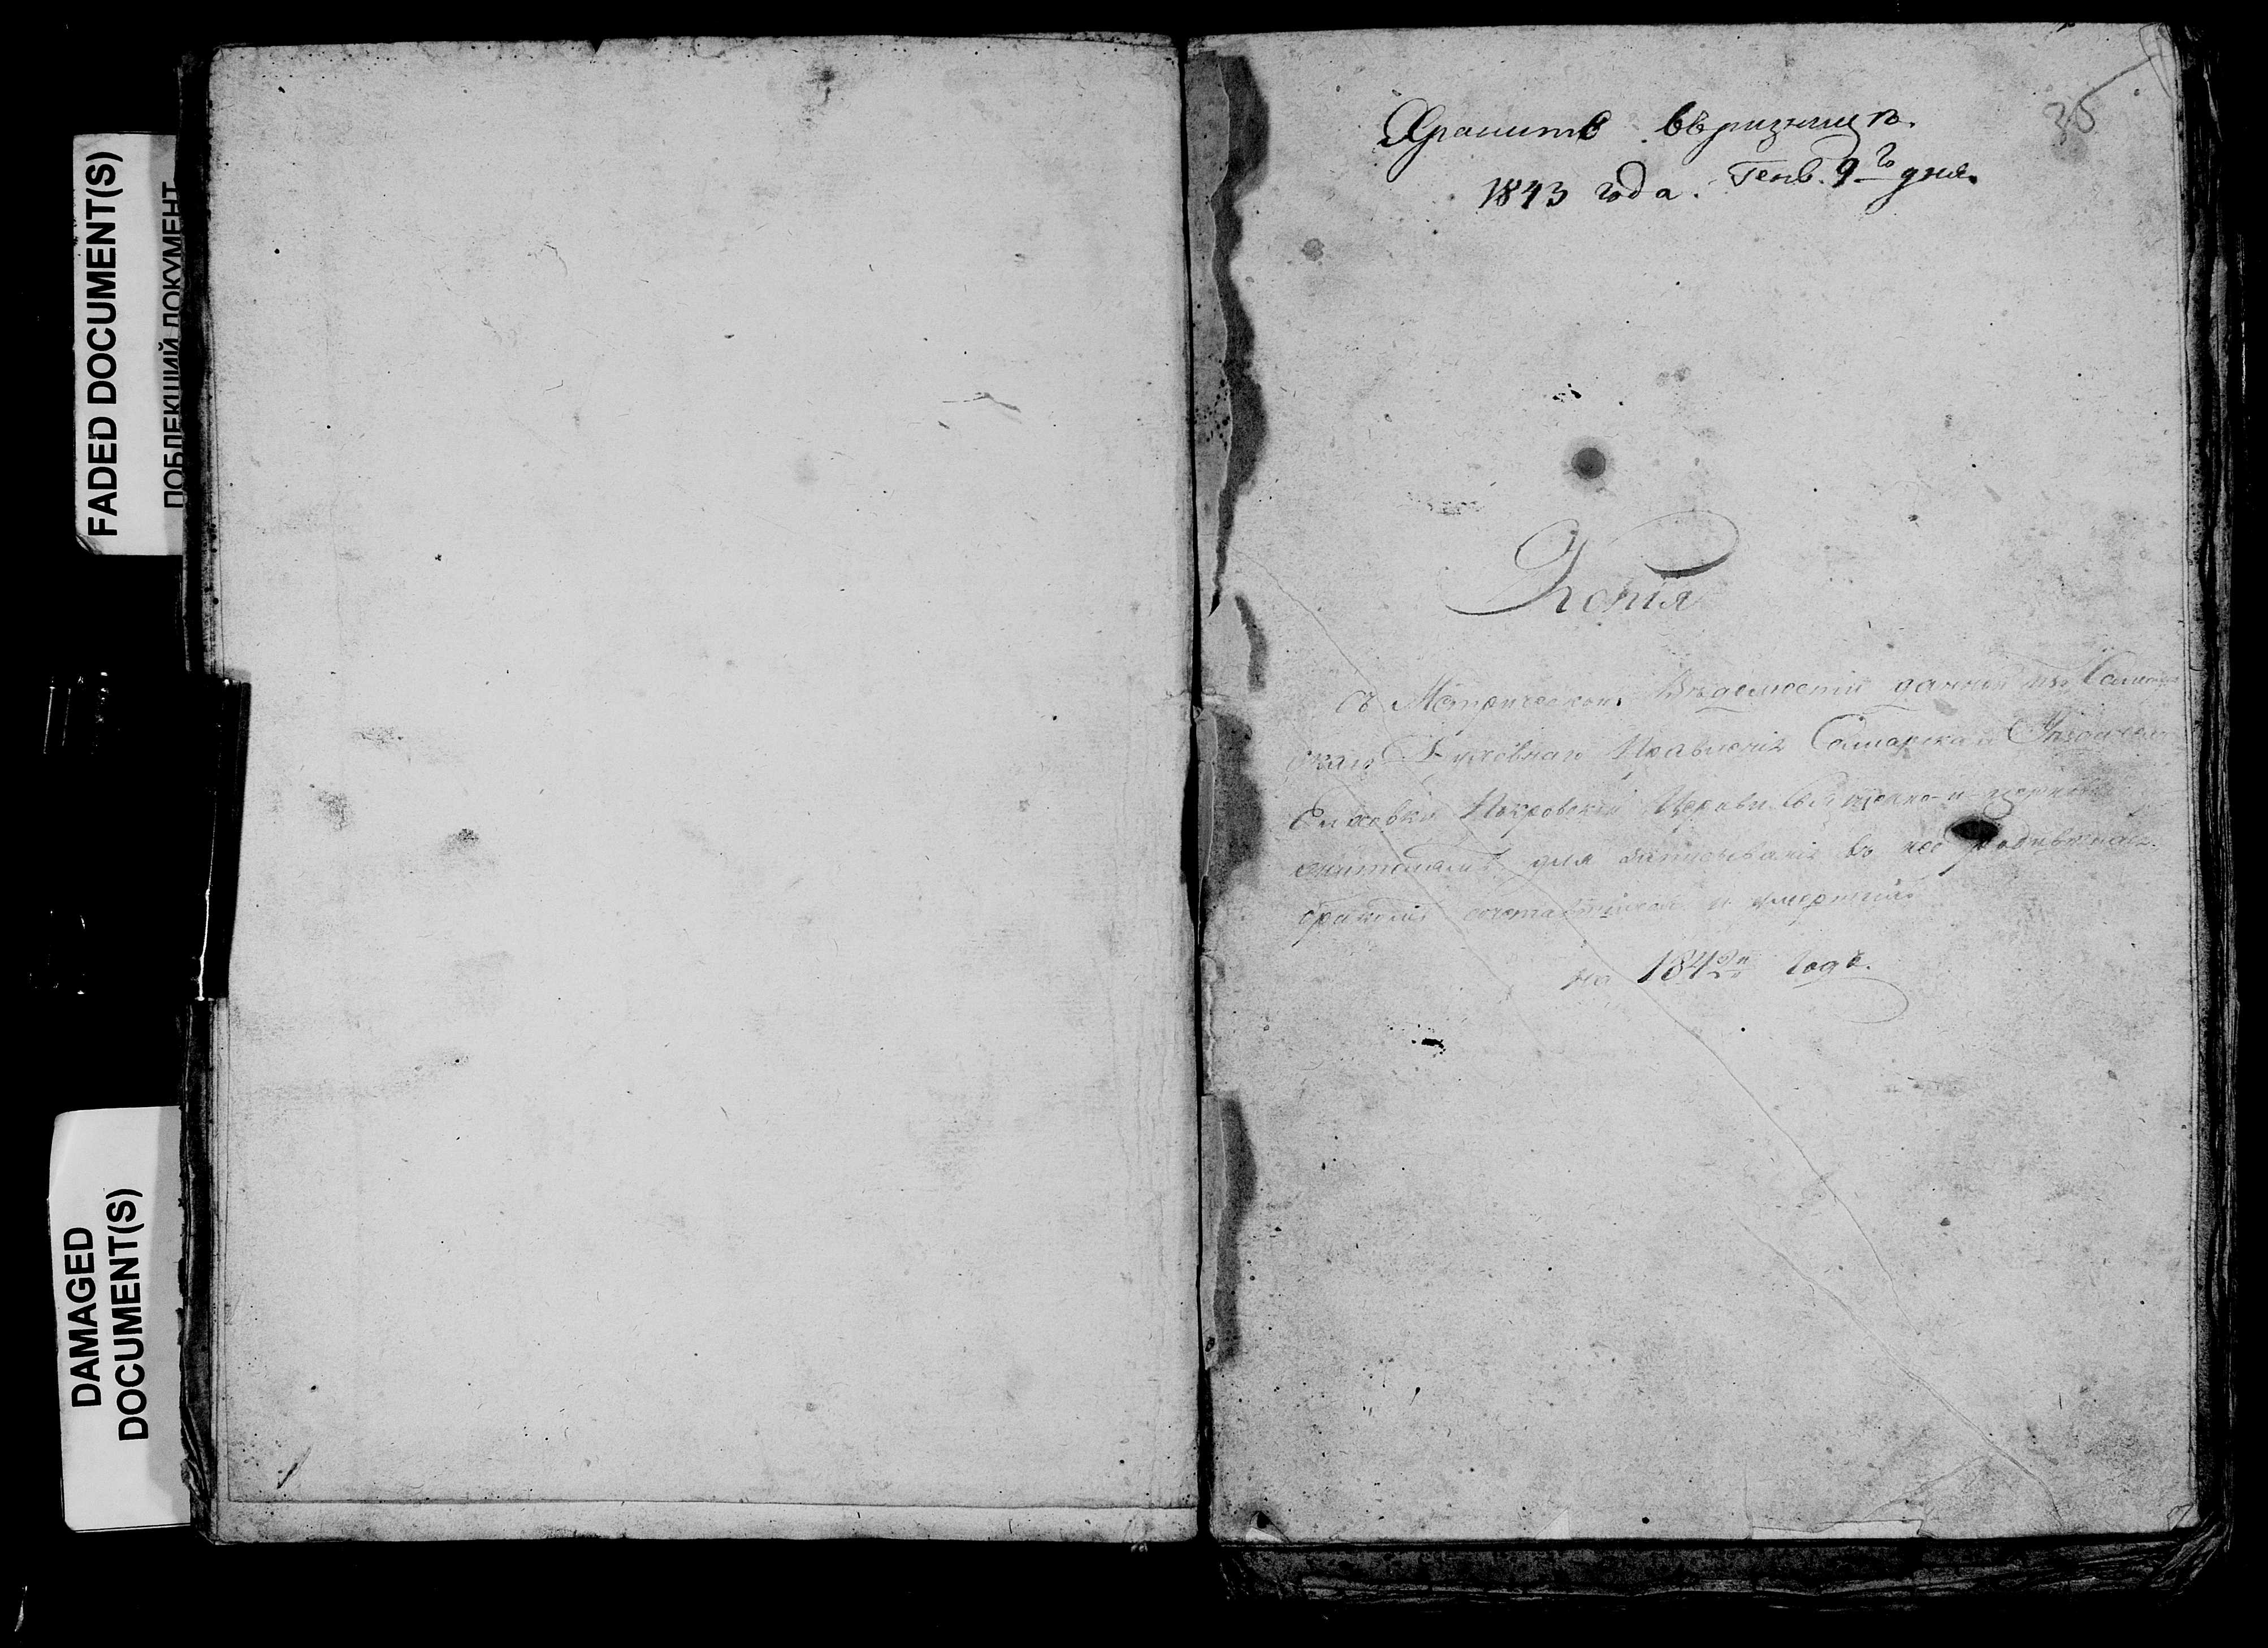 FADED DOCUMENT(S)
ПОБЛЕКШИЙ ДОКУМЕНТ
DAMAGED
DOCUMENT(S)
Хранить въ ризницѣ.
1843 года. Генв. 9го дня.
35
Копія
Съ Метрической Вѣдомости данной изъ
Духовнаго Правленія Самарскаго
Покровской Церкви Священно-и-церковно
служителямъ для записыванія въ нее родившихся,
бракомъ сочетавшихся и умершихъ
на 1842й годъ.